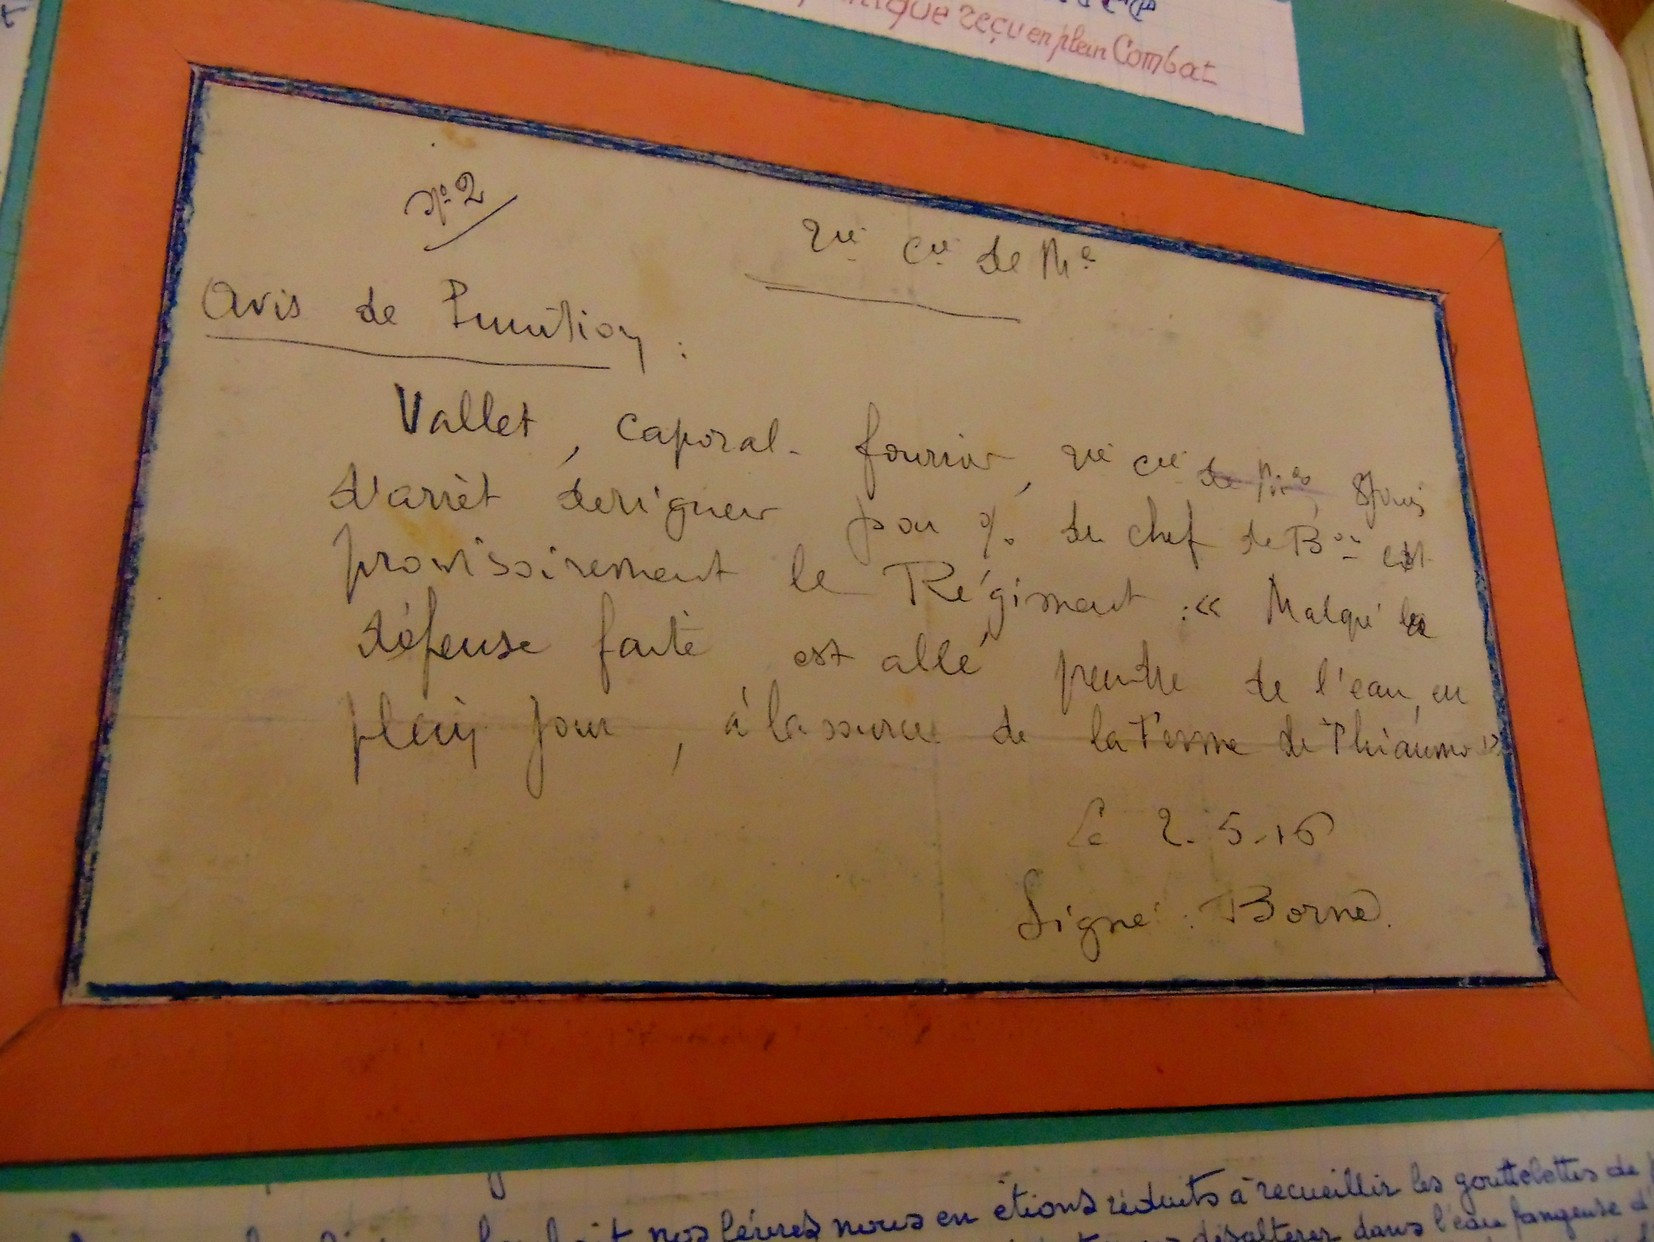 reçu en plein Combat
N° 2
2me Cie de Mre
Avis de Punition :
Vallet, caporal-fourrier, 2me Cie de Mres, 8 jours
d'arrêt designer par % du chef de Bon cdt
provisoirement le Régiment : « Malgré la
défense faite est allé prendre de l'eau, en
plein jour, à la source de la Ferme de Thiaumo »
Le 2-5-16
Signé : Borne.
nos lèvres nous en étions réduits à recueillir les gouttelettes de
désalterer dans l'eau fangeuse d'